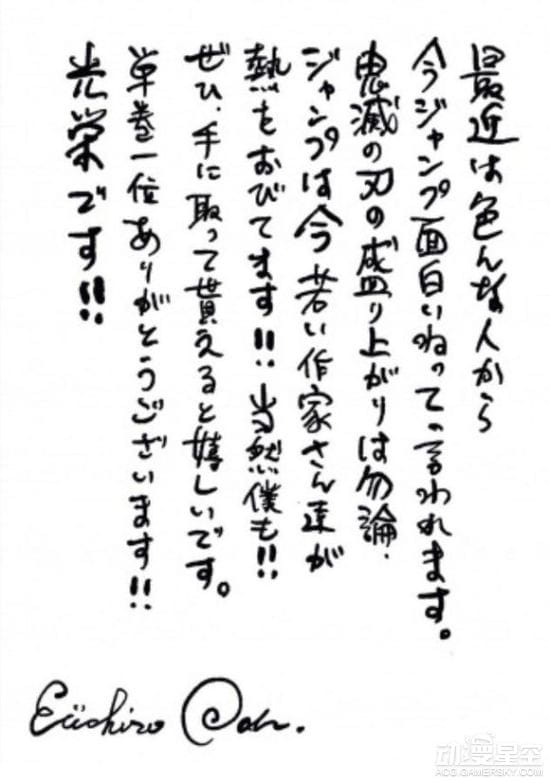 最近は色んな人から
今ジャンプ面白いねって言われます。
鬼滅の刃の盛り上がりは勿論、
ジャンプは今若い作家さん達が
熱をおびてます!!当然僕も!!
ぜひ、手に取って貰えると嬉しいです。
単巻一位ありがとうございます!!
光栄です!!
Eiichiro Oda.
动漫星空
ACG.GAMERSKY.COM